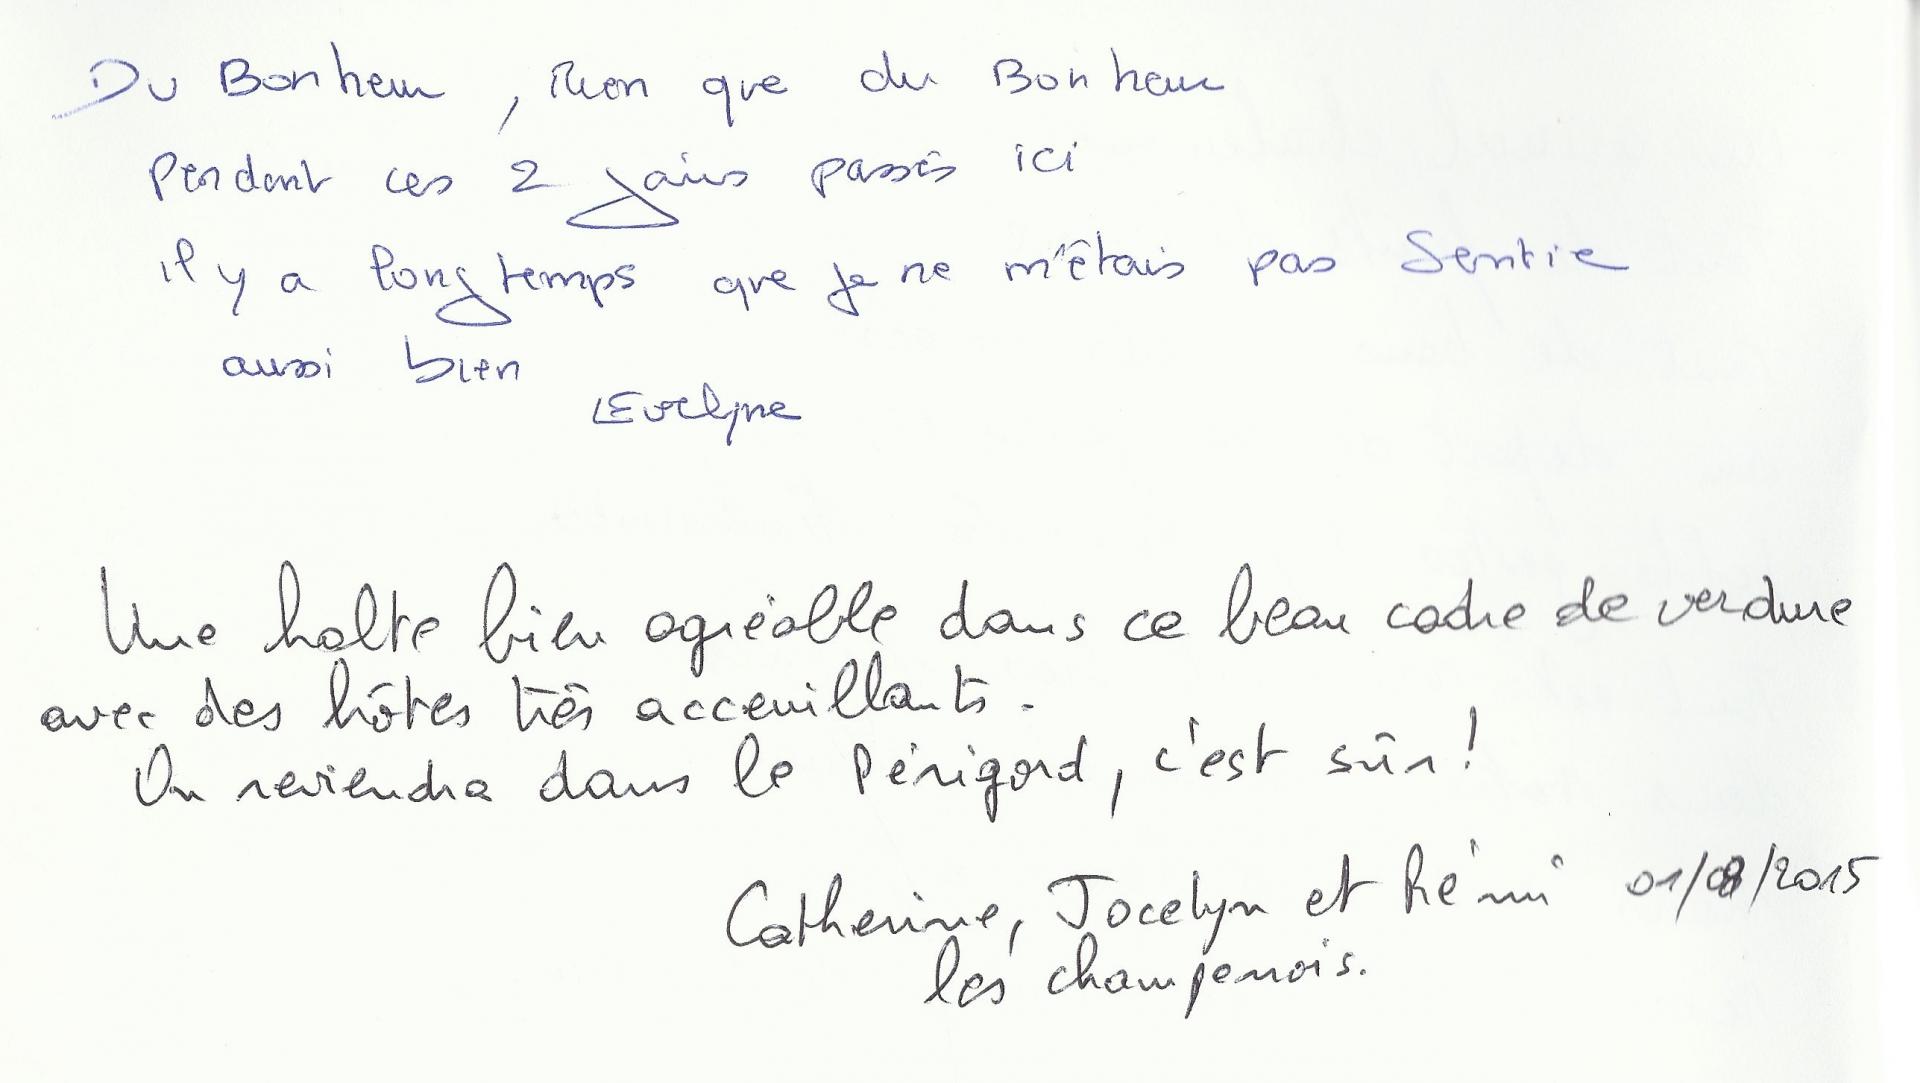 Du Bonheur, Rien que du Bonheur
Pendant ces 2 jours passés ici
il y a longtemps que je ne m'étais pas Sentie
aussi bien
Evelyne
Une halte bien agréable dans ce beau cadre de verdure
avec des hôtes très acceuillants.
On reviendra dans le Périgord, c'est sûr!
Catherine, Jocelyn et Rémi 01/08/2015
les champenois.